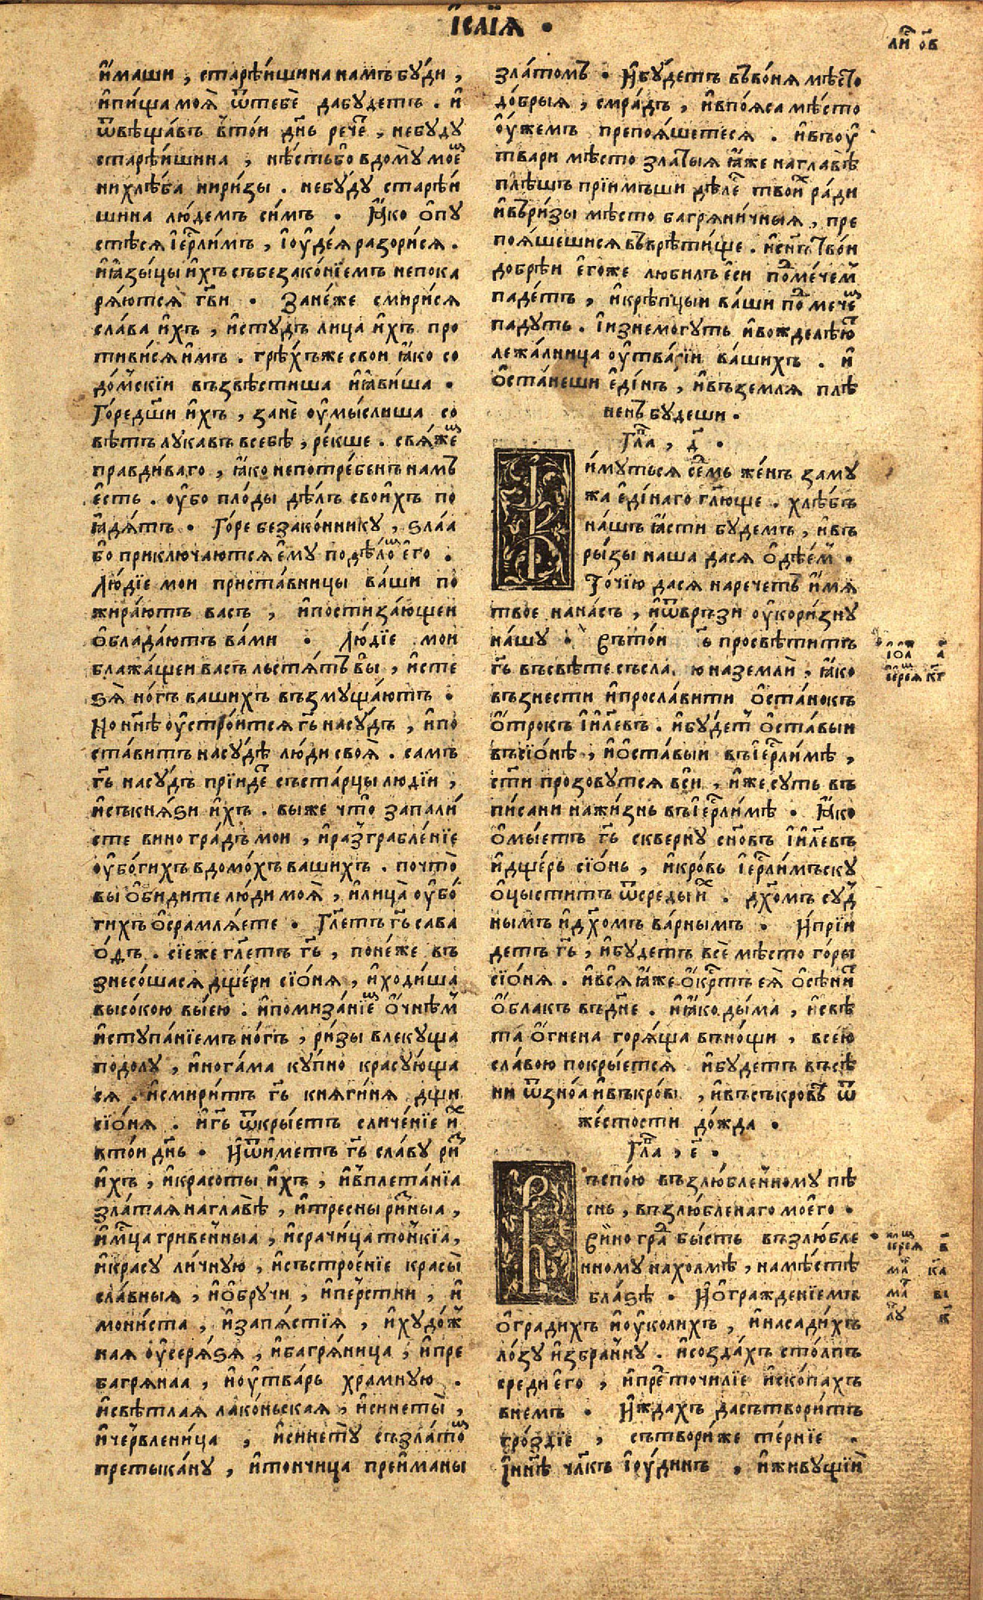 І҆саі́ꙗ .
и҆́маши , старѣ́ишина намъ бу́ди ,
и҆пи́ща моѧ̀ ѿтебѐ дабудетъ . и҆
ѿвѣщавъ втои дн҃ь речѐ , небуду
старѣ́ишина , нѣ́стьбо вдому мое
нихлѣ́ба ниризы . небуду старѣ́и
шина лю́демъ симъ . Ꙗ҆́ко ѻ҆пу
стѣ́сѧ і҆ер҃лимъ , і҆оуде́ꙗ разорисѧ .
и҆ꙗ҆зы́цы и҆́хъ събезако́нїемъ непока
рѧ́ютсѧ гв҃и . Зане́же смирисѧ
слава и҆́хъ , и҆студъ лица и҆́хъ про
тивисѧ и҆мъ . грѣ́хъже свои ꙗ҆́ко со
до́мскїи възвѣ́стиша и҆ꙗ҆виша .
Го́редш҃и и҆́хъ , занѐ оу҆мы́слиша со
вѣтъ лукавъ всебѣ̀ , ре́кше . свѧ́же
правди́ваго , ꙗ҆́ко непотре́бенъ намъ
е҆сть . оу҆бо плоды дѣлъ свои́хъ по
ꙗ҆дѧ́тъ . Горе безако́ннику , ѕлаа
бо приключа́ютсѧ е҆му подѣло е҆го .
Лю́дїе мои приставницы ваши по
жира́ютъ васъ , и҆постиза́ющеи
ѻ҆блада́ютъ вами . Лю́дїе мои
блажа́щеи васъ льстѧ́тъ вы̀ , и҆сте
ѕѧ̀ но́гъ вашихъ възмуща́ютъ .
Но нн҃ѣ оу҆стро́итсѧ гь҃ насу́дъ , и҆по
ста́витъ насудѣ̀ лю́ди своѧ . самъ
гь҃ насудъ прїидетъ съста́рцы людїи ,
и҆съкнѧѕи и҆́хъ . выже что̀ запали́
сте виногра́дъ мои , и҆разграбле́нїе
оу҆бо́гихъ вдомо́хъ вашихъ . почто̀
вы ѻ҆би́дите лю́ди моѧ̀ , и҆лица̀ оу҆бо́
гихъ ѻ҆срамлѧ́ете . Гл҃етъ гь҃ сава
ѻ҆́дъ . сїеже гл҃етъ гь҃ , поне́же въ
знесо́шасѧ дще́ри сїо́нѧ , и҆ходи́ша
высо́кою вы́ею . и҆помиза́нїе ѻ҆чнѣ́м
и҆ступа́нїемъ но́гъ , ри́зы влекуща
подолу , и҆ногама ку́пно красую́ща
сѧ . и҆смиритъ гь҃ кнѧги́нѧ дщи
сїо́нѧ . и҆гь҃ ѿкры́етъ сличе́нїе и҆х
втои дн҃ь . И҆ѿи́метъ гь҃ сла́ву ри
и҆́хъ , и҆красоты и҆́хъ , и҆вплета́нїа
злата́ѧ наглавѣ̀ , и҆тресны ри́зныа ,
гри́венныа , и҆срачи́ца то́нкїа ,
и҆красу ли́чную , и҆състрое́нїе красы̀
сла́вныѧ , и҆ѻ҆бручи , и҆пе́рстни , и҆
мони́ста , и҆запѧ́стїѧ , и҆худо́ж
наѧ оу҆серѧ́ѕѧ , и҆багрѧ́ница , и҆пре
багрѧнаа , и҆оутва́рь храмную .
и҆свѣ́тлаѧ лако́ньскаѧ , и҆синеты ,
и҆че́рвленица , и҆синету съзла́то
претыка́ну , и҆тончица преи҆маны
зла́томъ . И҆бу́детъ въво́нѧ мѣсто
до́брыѧ , смра́дъ , и҆впо́ѧса мѣ́сто
оу҆́жемъ препоѧ́шетесѧ . и҆въоу҆
твари мѣсто златыѧ ꙗ҆́же наглавѣ̀
плѣ́шъ прїи́мѣши дѣлъ твои́х ради
и҆въри́зы мѣсто багрѧни́чныѧ , пре
поѧ́шешисѧ въврѣ́тище . и҆сн҃ъ твои
добрѣ́и е҆го́же любилъ е҆си под мече́м
паде́тъ , и҆крѣ́пцыи ваши под мече
падутъ . І҆изнемо́гутъ и҆вожделѣю
лежа́лница оу҆тва́рїи ва́шихъ . и҆
ѻ҆ста́неши е҆ди́нъ , и҆въземлѧ плѣ
не́нъ будеши .
Гла , д҃ .
И́мутьсѧ се́дмь же́нъ за му
жа е҆ди́наго гл҃юще . хлѣ́бъ
нашъ ꙗ҆сти будемъ , и҆въ
ры́зы наша дасѧ ѻ҆дѣ́ем .
То́чїю дасѧ нарече́тъ и҆мѧ
твое нана́съ , и҆ѿвръзи оу҆кори́зну
на́шу . Въто́и просвѣти́тъ
гь҃ въсвѣте.съсла ю назем
ли̂ , ꙗ҆́ко
възнести и҆просла́вити ѻ҆ста́нокъ
ѻ҆́трокъ і҆и҃левъ . и҆бу́дет ѻ҆ста́выи
въсїо́нѣ , и҆ѻ҆ставыи въі҆ер҃ли́мѣ ,
ст҃и прозову́тсѧ вси , и҆же су́ть въ
пи́сани нажи́знь въі҆ер҃ли́мѣ . Ꙗ҆́ко
ѻ҆мы́етъ гь҃ скве́рну сн҃овъ і҆и҃левъ
и҆дще́рь сїо́нь , и҆кро́вь і҆ер҃лимъску
ѻ҆цы́ститъ ѿсреды́ и҆х . дх҃омъ су́д
ны́мъ и҆дх҃омъ ва́рнымъ . И҆прїи
детъ гь҃ , и҆бу́детъ всѐ мѣ́сто горы
сїо́нѧ . и҆всѧ ꙗ҆́же ѻ҆кр҃тъ еѧ̀ ѻ҆сѣ́ни
ѻ҆́блакъ въдн҃е . и҆ꙗ҆ко ды́ма , и҆свѣ́
та ѻ҆́гнена горѧ́ща въно́щи , все́ю
сла́вою покры́етсѧ и҆бу́детъ въсѣ
ни ѿзно́ѧ и҆въкро́вѣ , и҆въсъкро́въ ѿ
же́стости дожда .
Гла , е҃ .
ъспою възлюбле́нному пѣ
снь , възлюбленаго моего̀ .
Вино гра́д бы́сть възлюбле
нному нахолмѣ , намѣ́стѣ
блаѕѣ . И҆ѻ҆гражде́нїемъ
ѻ҆гради́хъ и҆оу҆коли́хъ , и҆насади́хъ
ло́зу и҆збра́нну . и҆созда́хъ сто́лпъ
среди́ е҆го , и҆пре́дточи́лїе и҆скопа́хъ
внемъ . И҆жда́хъ дасътвори́тъ
гро́здїе , сътвори́же те́рнїе .
І҆нн҃ѣ чл҃къ і҆юдинъ , и҆живущїи